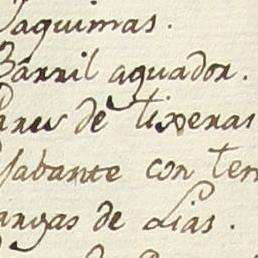 Jaquimas.
Barril aguador.
Pares de tixeras
Yabante con ter
angas de Lias.